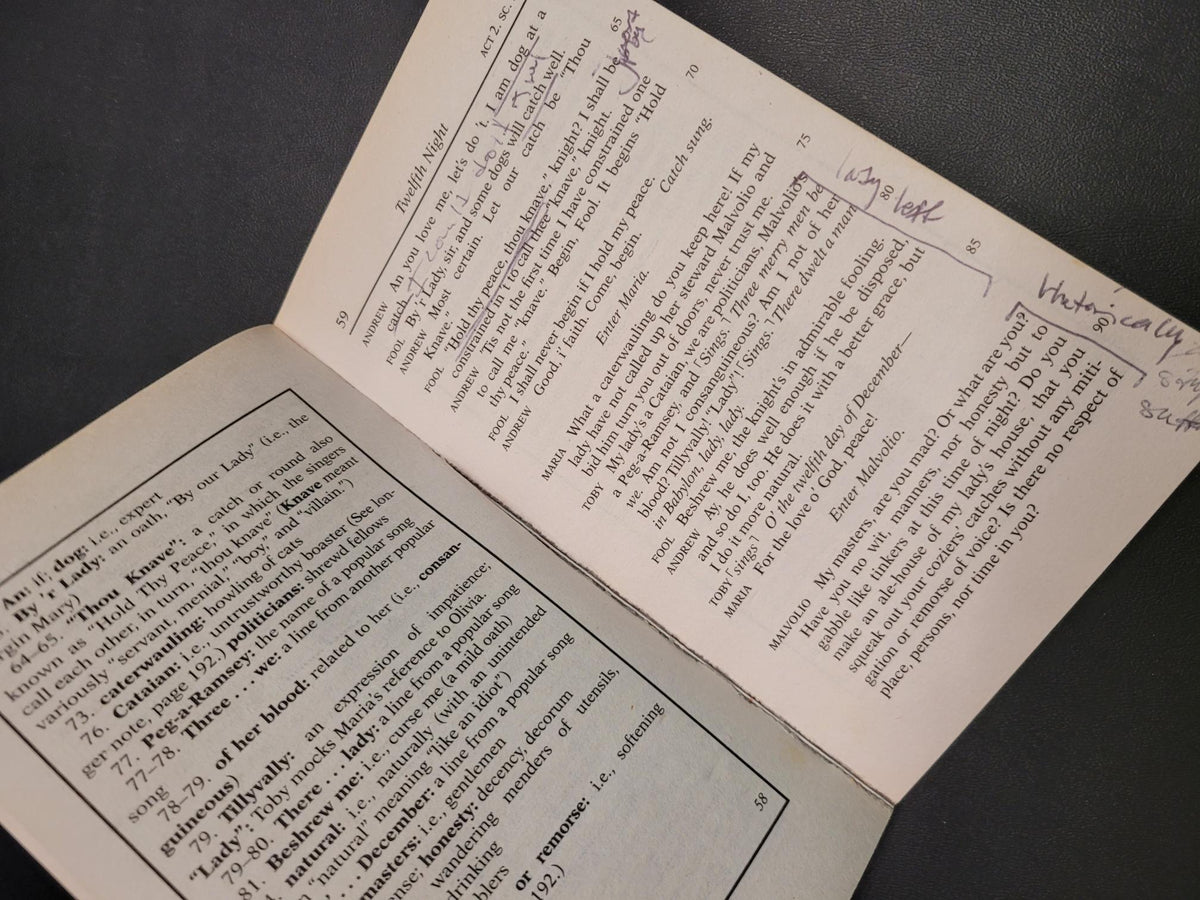 An: if; dog: i.e., expert
By 'r Lady: an oath, "By our Lady" (i.e., the
gin Mary)
64–65. "Thou Knave": a catch or round also
known as "Hold Thy Peace," in which the singers
call each other, in turn, "thou knave" (Knave meant
variously "servant, menial," "boy," and "villain.")
73. caterwauling: howling of cats
76. Catatan: i.e., untrustworthy boaster (See lon-
ger note, page 192.) politicians: shrewd fellows
77. Peg-a-Ramsey: the name of a popular song
77–78. Three . . . we: a line from another popular
song
78–79. of her blood: related to her (i.e., consan-
guineous)
79. Tillyvally: an expression of impatience;
"Lady": Toby mocks Maria's reference to Olivia.
79–80. There . . . lady: a line from a popular song
81. Beshrew me: i.e., curse me (a mild oath)
natural: i.e., naturally (with an unintended
"natural" meaning "like an idiot")
. . . December: a line from a popular song
masters: i.e., gentlemen
honesty: decency, decorum
wandering menders of utensils,
drinking
blers
or remorse: i.e., softening
192.)
58
59 Twelfth Night ACT 2. SC.
ANDREW An you love me, let's do 't. I am dog at a
catch.
FOOL By 'r Lady, sir, and some dogs will catch well.
ANDREW Most certain. Let our catch be "Thou
Knave."
FOOL "Hold thy peace, thou knave," knight? I shall be 65
constrained in 't to call thee "knave," knight.
ANDREW 'Tis not the first time I have constrained one
to call me "knave." Begin, Fool. It begins "Hold
thy peace."
FOOL I shall never begin if I hold my peace. 70
ANDREW Good, i' faith. Come, begin. Catch sung.
Enter Maria.
MARIA What a caterwauling do you keep here! If my
lady have not called up her steward Malvolio and
bid him turn you out of doors, never trust me. 75
TOBY My lady's a Catatan, we are politicians, Malvolio's
a Peg-a-Ramsey, and ⌜Sings.⌝ Three merry men be
we. Am not I consanguineous? Am I not of her
blood? Tillyvally! "Lady"! ⌜Sings.⌝ There dwelt a man
in Babylon, lady, lady. 80
lady left
FOOL Beshrew me, the knight's in admirable fooling.
ANDREW Ay, he does well enough if he be disposed,
and so do I, too. He does it with a better grace, but
I do it more natural.
TOBY ⌜sings⌝ O' the twelfth day of December— 85
MARIA For the love o' God, peace!
Enter Malvolio.
MALVOLIO My masters, are you mad? Or what are you?
Have you no wit, manners, nor honesty but to
gabble like tinkers at this time of night? Do you
make an ale-house of my lady's house, that you 90
squeak out your coziers' catches without any miti-
gation or remorse of voice? Is there no respect of
place, persons, nor time in you?
rhetorically